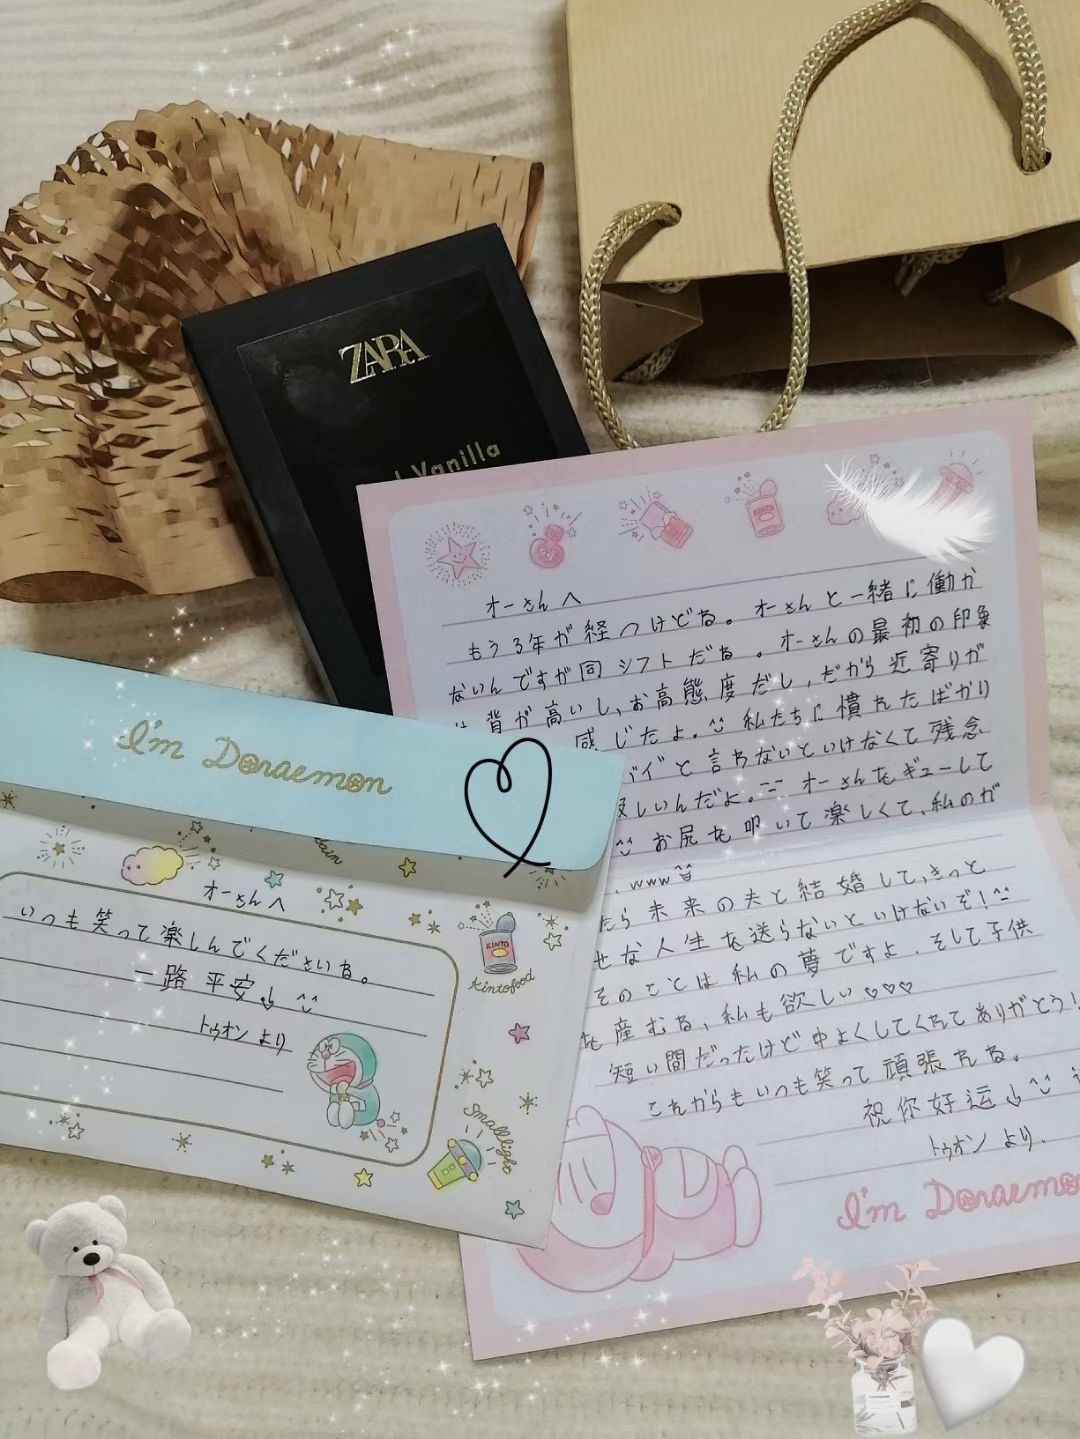 ZARA
Vanilla
KINTO
オーさんへ
もう3年が経つけどね。オーさんと一緒に働か
ないんですが同シフトだね。オーさんの最初の印象
は背が高いし、お高態度だし、だから近寄りが
感じたよ。^^ 私たちに慣れたばかり
バイと言わないといけなくて残念
寂しいんだよ。オーさんをギューして
^^ お尻を叩いて楽しくて、私のが
、www
たら未来の夫と結婚して、きっと
せな人生を送らないといけないぞ!^^
そのことは私の夢ですよ。そして子供
を産むね、私も欲しい♡♡♡
短い間だったけど仲よくしてくれてありがとう!
これからもいつも笑って頑張れる。
祝你好运↓^^
トゥオン より.
I'm Doraemon
I'm Doraemon
オーさんへ
いつも笑って楽しんでくださいね。
一路平安↓ ^^
トゥオン より
KINTO
Kintofood
Smalllight